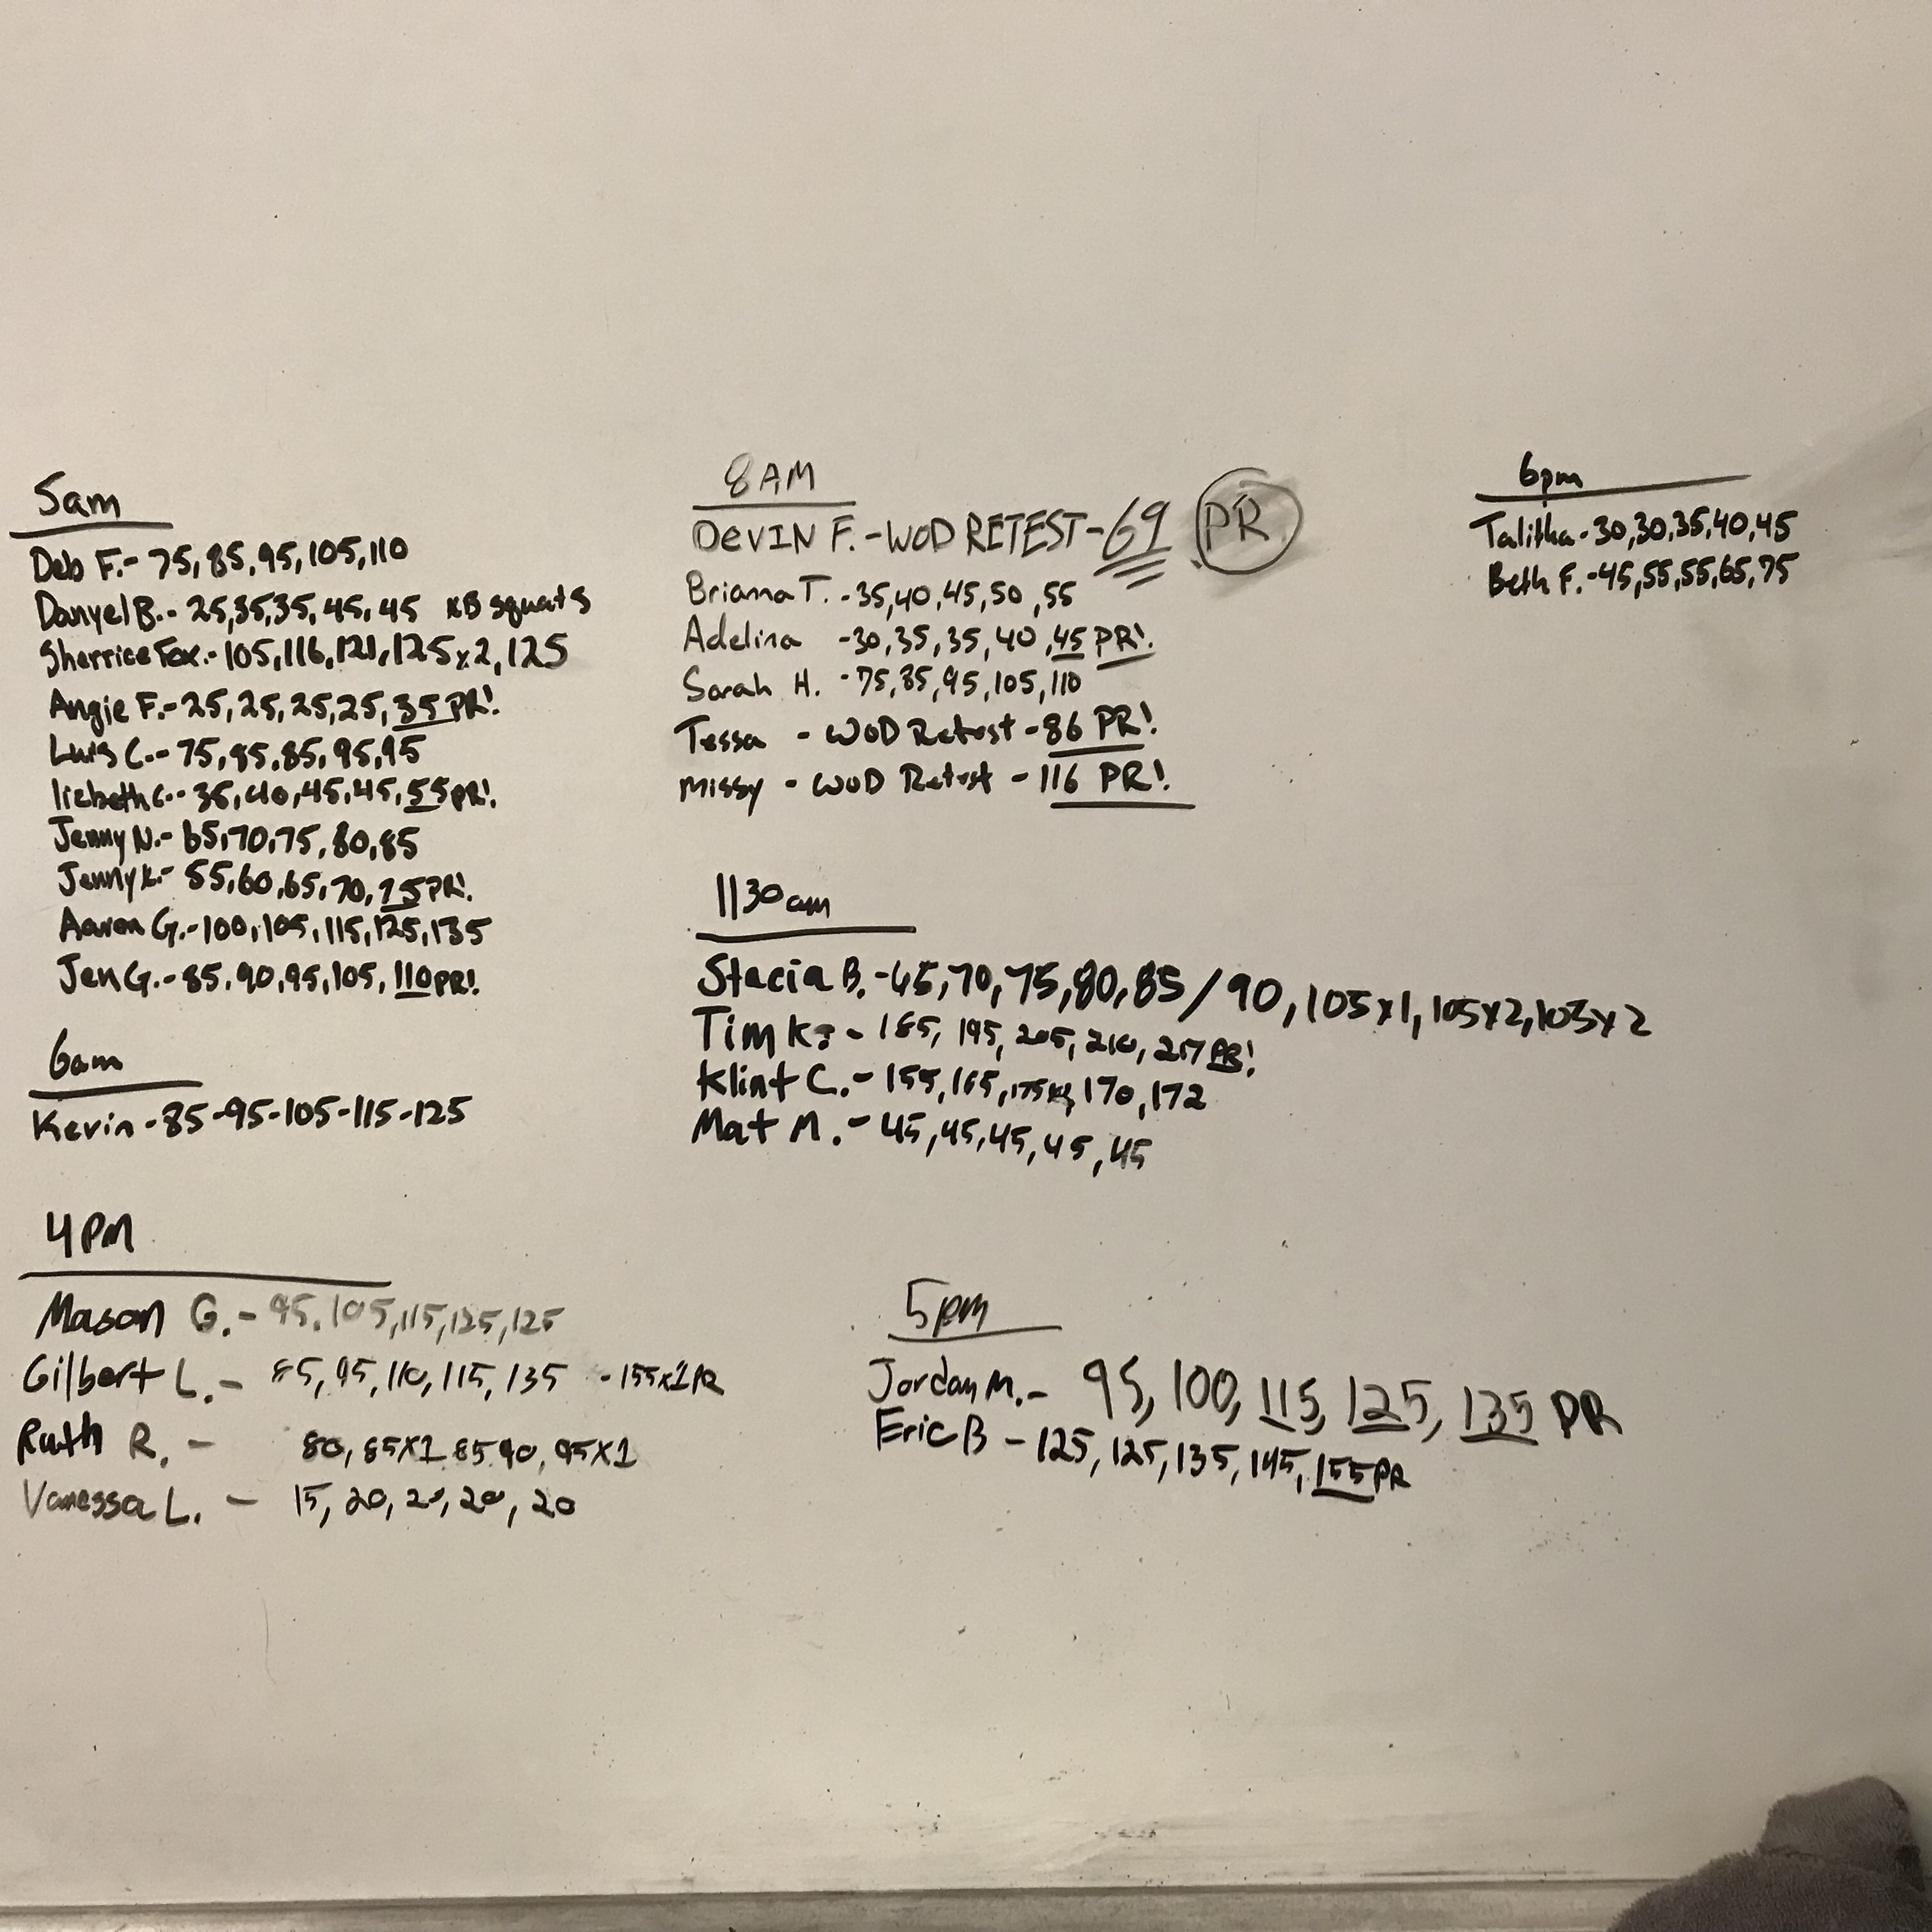 5am
Deb F.- 75,85,95,105,110
Danyel B.- 25,35,35,45,45 KB squats
Sherrice Fox.- 105,116,121,125x2,125
Angie F.- 25,25,25,25,35 PR!
Luis C.- 75,85,85,95,95
lizbeth C.- 35,40,45,45,55 PR!
Jenny N.- 65,70,75,80,85
Jenny K.- 55,60,65,70,75 PR!
Aaron G.- 100,105,115,125,135
Jen G.- 85,90,95,105,110 PR!
6am
Kevin - 85-95-105-115-125
8AM
DEVIN F. - WOD RETEST - 69 PR
Brianna T. - 35,40,45,50,55
Adelina - 30,35,35,40,45 PR!
Sarah H. - 75,85,95,105,110
Tessa - WOD Retest - 86 PR!
Missy - WOD Retest - 116 PR!
1130am
Stacia B. - 65,70,75,80,85/90,105x1,105x2,105x2
Tim K. - 185, 195, 205, 210, 217 PR!
Klint C. - 155,165,175x2,170,172
Mat M. - 45,45,45,45,45
4PM
Mason G. - 95,105,115,125,125
Gilbert L. - 85,95,110,115,135 - 155x1 PR
Ruth R. - 80, 85x1 85 90, 95x1
Vanessa L. - 15, 20, 20, 20, 20
5pm
Jordan M. - 95, 100, 115, 125, 135 PR
Eric B - 125, 125, 135, 145, 155 PR
6pm
Talitha - 30,30,35,40,45
Beth F. - 45,55,55,65,75